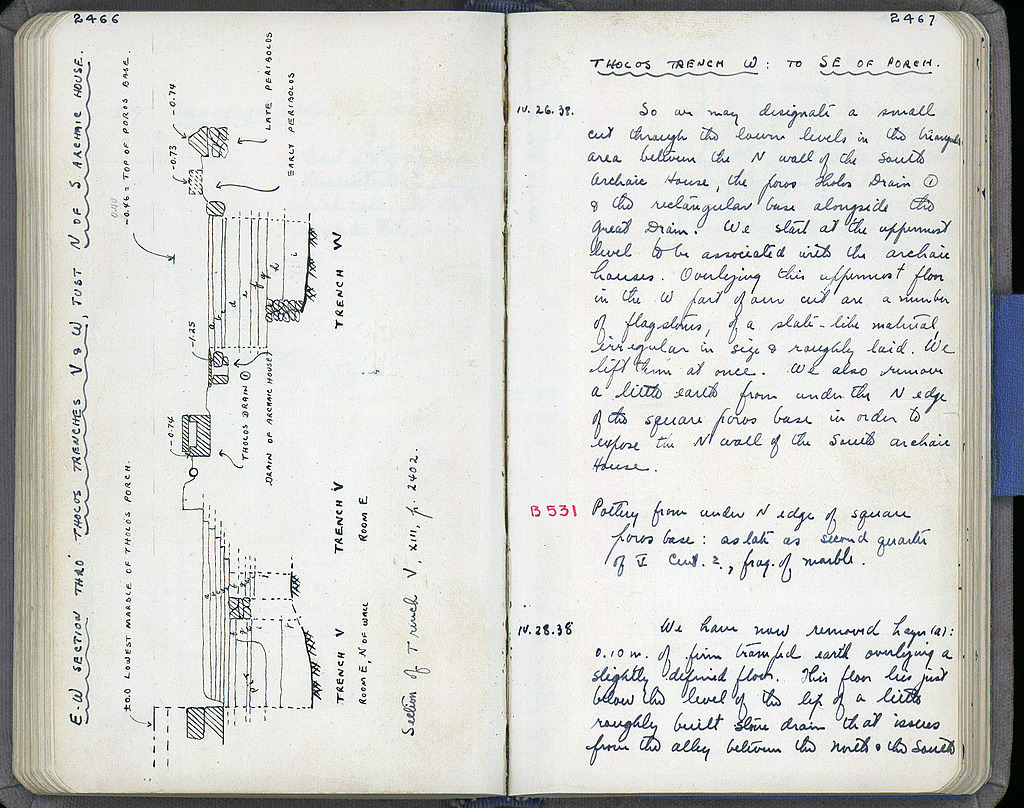 2466
E-W SECTION THRO' THOLOS TRENCHES V & W, JUST N OF S ARCHAIC HOUSE.
±0.0 LOWEST MARBLE OF THOLOS PORCH.
-0.46 = TOP OF POROS BASE.
0.40
-0.74
-0.73
LATE PERIBOLOS
EARLY PERIBOLOS
-1.25
-0.74
THOLOS DRAIN ①
DRAIN OF ARCHAIC HOUSE?
a
b
c
d
e
f
g
h
i
TRENCH W
TRENCH V
ROOM E
TRENCH V
ROOM E, N OF WALL
Section of Trench V, XIII, p. 2402.
2467
THOLOS TRENCH W: TO SE OF PORCH.
IV.26.38.
So we may designate a small
cut through the lower levels in the triangular
area between the N wall of the South
Archaic House, the poros Tholos Drain ①
& the rectangular base alongside the
Great Drain. We start at the uppermost
level to be associated with the archaic
houses. Overlying this uppermost floor
in the W part of our cut are a number
of flagstones, of a slate-like material,
irregular in size & roughly laid. We
lift them at once. We also remove
a little earth from under the N edge
of the square poros base in order to
expose the N wall of the South archaic
House.
B 531
Pottery from under N edge of square
poros base: as late as second quarter
of V Cent. ?, frag. of marble.
IV.28.38
We have now removed layer (a):
0.10 m. of firm tramped earth overlying a
slightly defined floor. This floor lies just
below the level of the lip of a little
roughly built stone drain that issues
from the alley between the North & the South